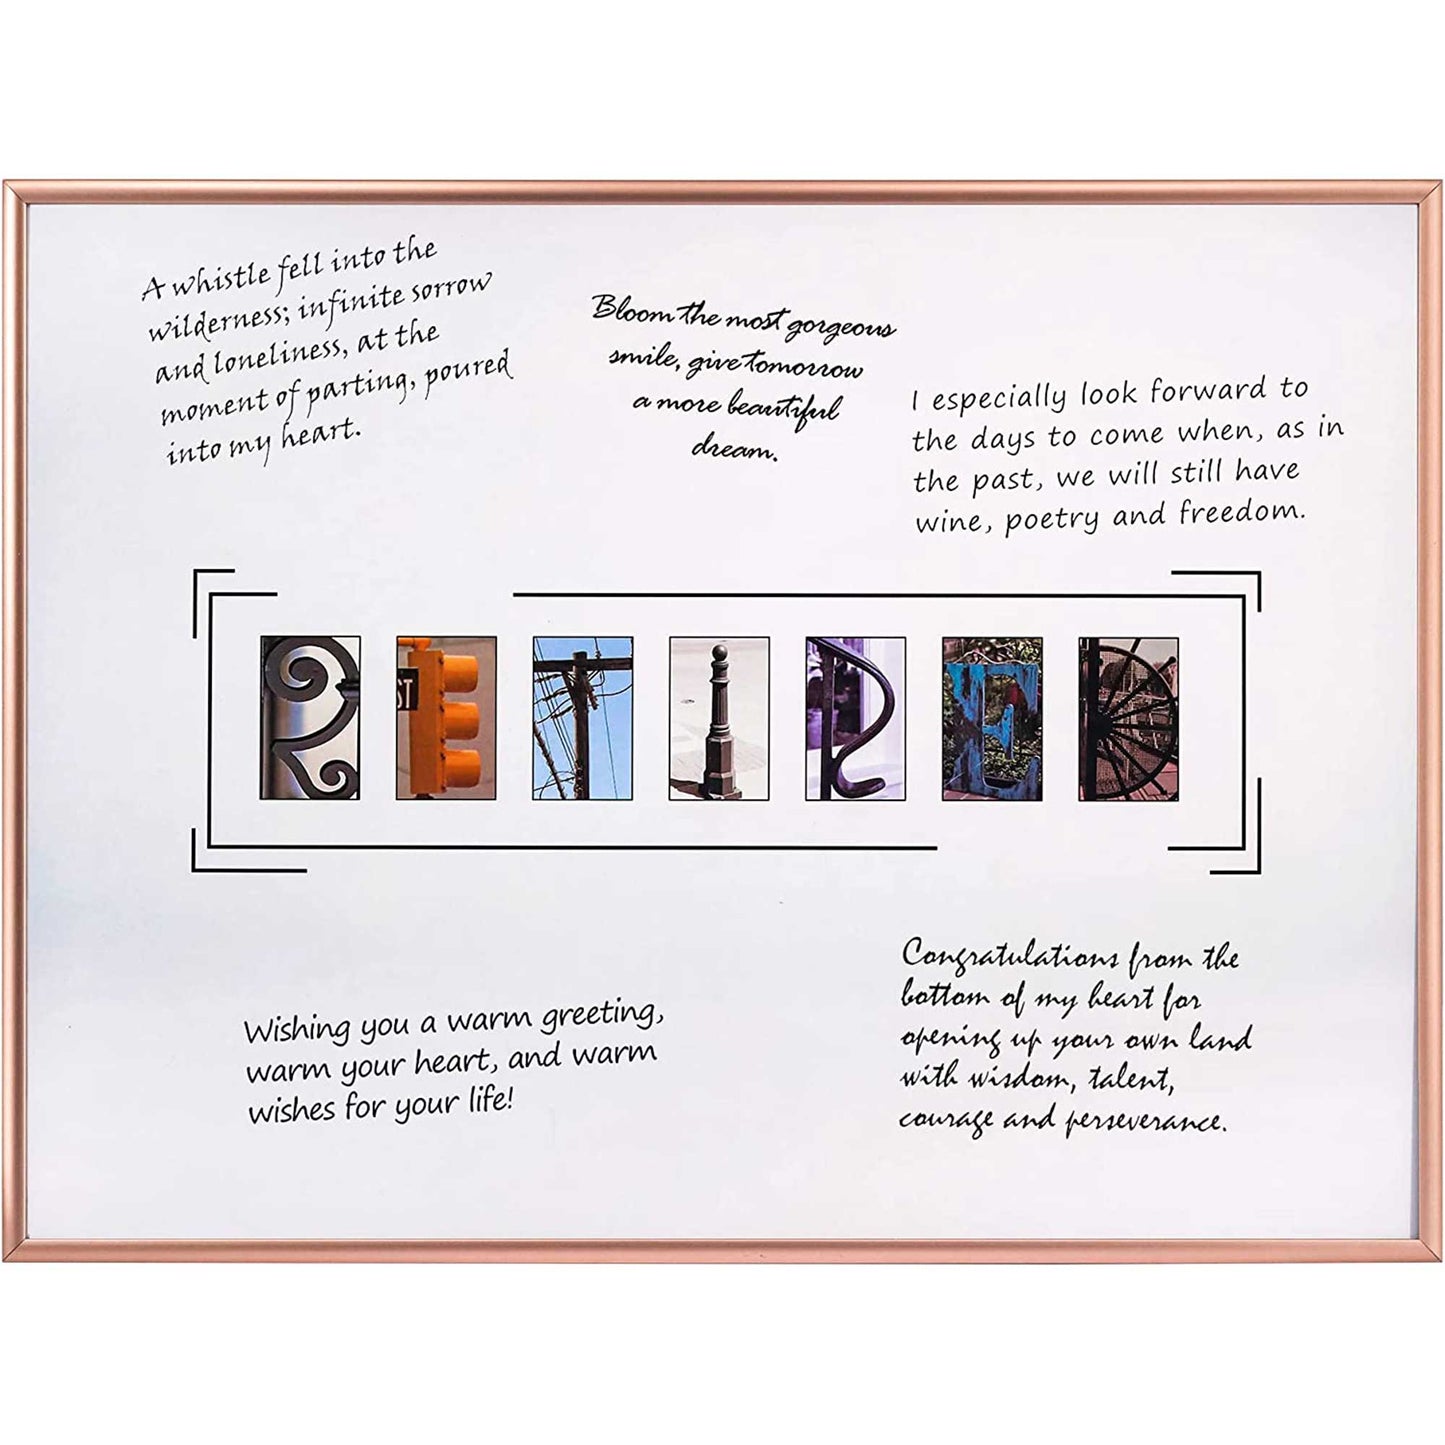 A whistle fell into the
wilderness; infinite sorrow
and loneliness, at the
moment of parting, poured
into my heart.
Bloom the most gorgeous
smile, give tomorrow
a more beautiful
dream.
I especially look forward to
the days to come when, as in
the past, we will still have
wine, poetry and freedom.
RETIRED
ST
Wishing you a warm greeting,
warm your heart, and warm
wishes for your life!
Congratulations from the
bottom of my heart for
opening up your own land
with wisdom, talent,
courage and perseverance.